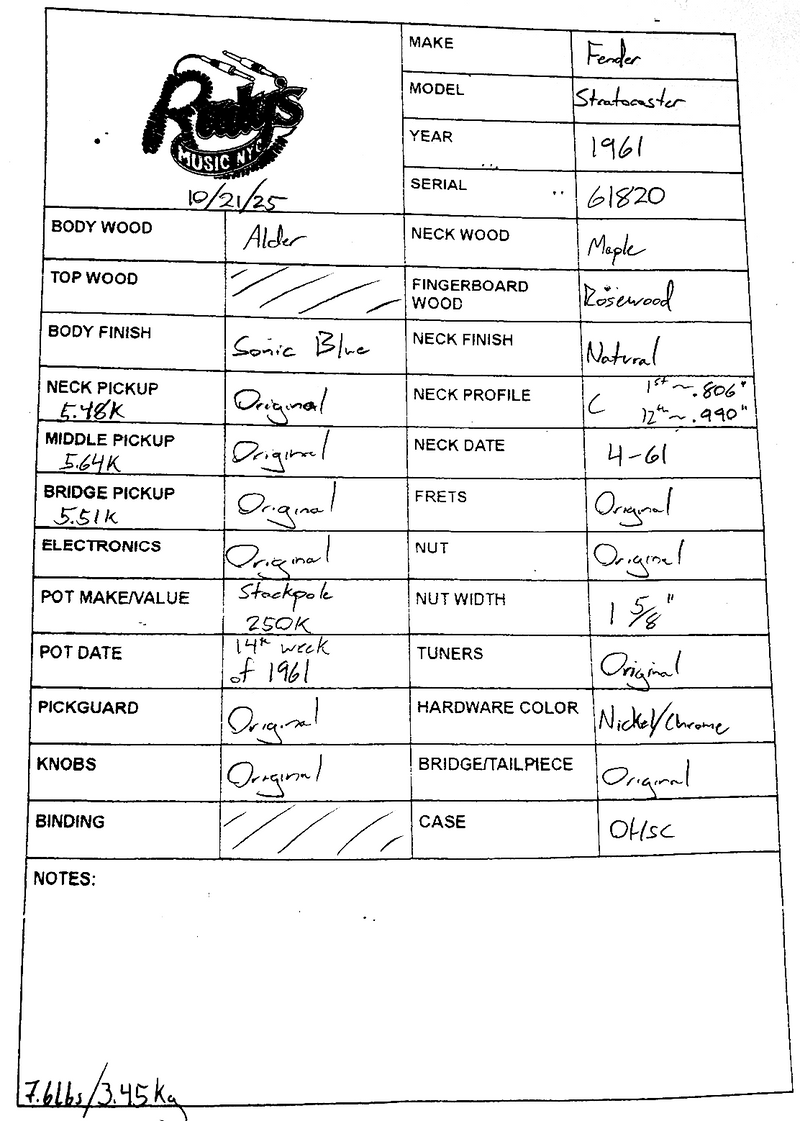 Rudy's
MUSIC NYC
10/21/25
MAKE Fender
MODEL Stratocaster
YEAR 1961
SERIAL 61820
BODY WOOD Alder
NECK WOOD Maple
TOP WOOD
FINGERBOARD WOOD Rosewood
BODY FINISH Sonic Blue
NECK FINISH Natural
NECK PICKUP 5.48K Original
NECK PROFILE C 1st ~ .806" 12th ~ .990"
MIDDLE PICKUP 5.64K Original
NECK DATE 4-61
BRIDGE PICKUP 5.51K Original
FRETS Original
ELECTRONICS Original
NUT Original
POT MAKE/VALUE Stackpole 250K
NUT WIDTH 1 5/8"
POT DATE 14th week of 1961
TUNERS Original
PICKGUARD Original
HARDWARE COLOR Nickel/Chrome
KNOBS Original
BRIDGE/TAILPIECE Original
BINDING
CASE OHSC
NOTES:
7.6lbs/3.45Kg